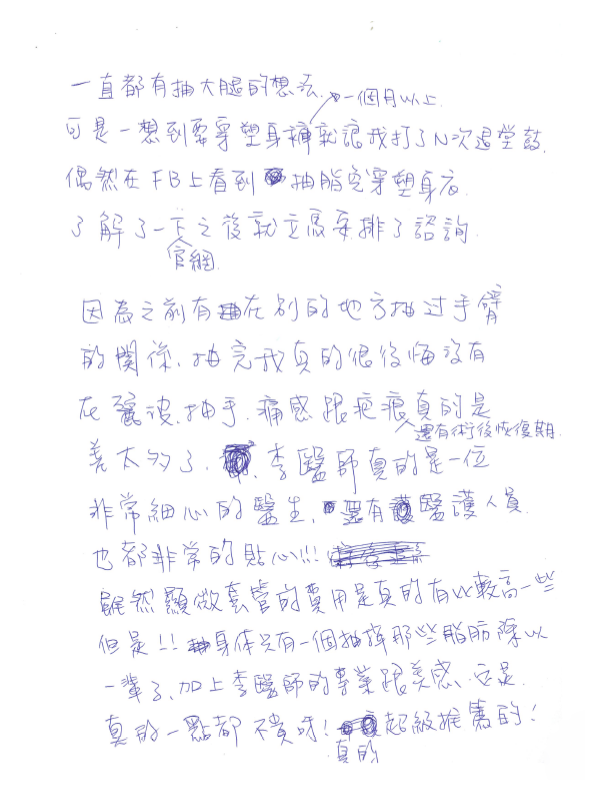 一直都有抽大腿的想法
一個月以上
可是一想到要穿塑身褲就讓我打了N次退堂鼓.
偶然在FB上看到 抽脂免穿塑身衣
了解了一下之後就立馬安排了諮詢
官網
因為之前有在別的地方抽过手臂
的關係、抽完我真的很後悔沒有
在麗波.抽手.痛感跟疤痕真的是
還有術後恢復期.
差太多了. 李醫師真的是一位
非常細心的醫生, 還有醫護人員
也都非常的貼心!!!
雖然顯微套管的費用是真的有比較高一些
但是!! 身体只有一個抽掉那些脂肪除以
一輩子、加上李醫師的專業跟美感、
真的一點都不貴呀! 超級推薦的!
真的